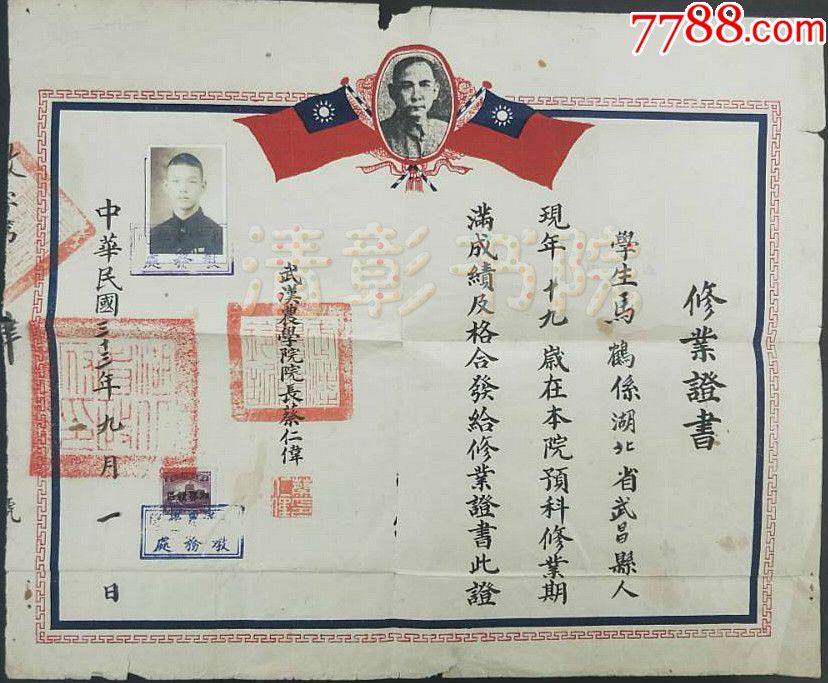 7788.com
修業證書
學生馬鶴係湖北省武昌縣人
現年十九歲在本院預科修業期
滿成績及格合發給修業證書此證
武漢農學院院長蔡仁偉
中華民國三十三年九月一日
教務處
教務處
清彰书院